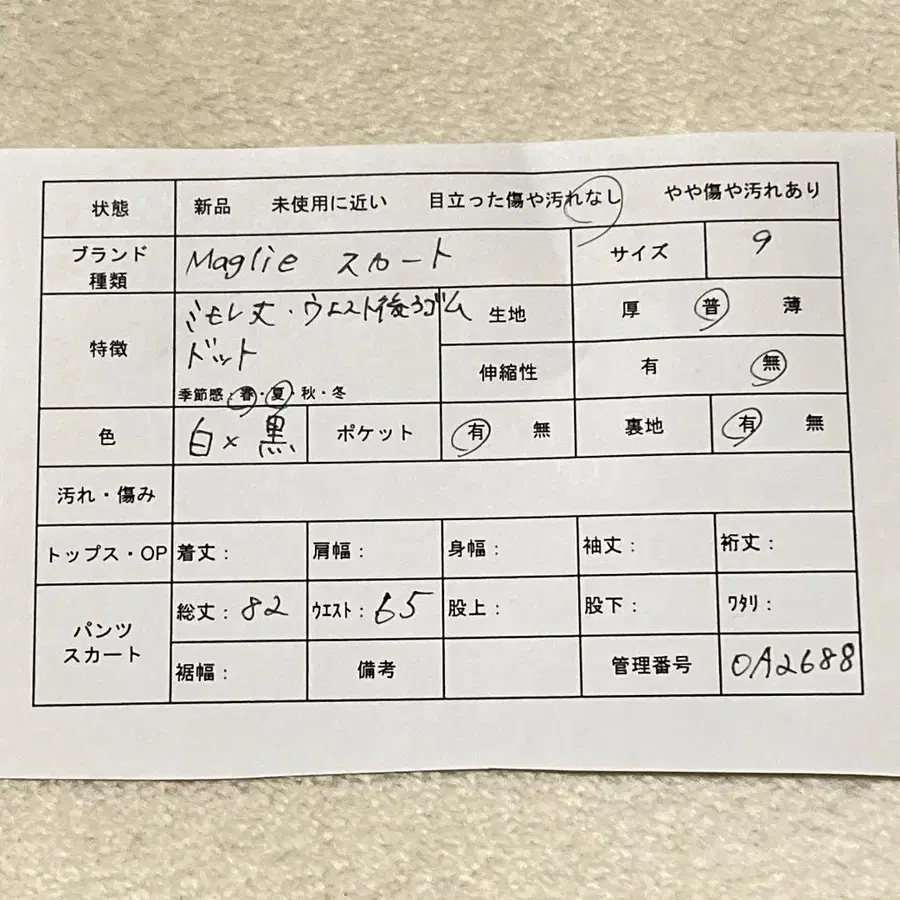 状態 新品 未使用に近い 目立った傷や汚れなし やや傷や汚れあり
ブランド 種類 Maglie スカート サイズ 9
特徴 ミモレ丈・ウエスト後ろゴム
ドット
季節感:春・夏・秋・冬
生地 厚 普 薄
伸縮性 有 無
色 白×黒 ポケット 有 無 裏地 有 無
汚れ・傷み
トップス・OP 着丈: 肩幅: 身幅: 袖丈: 裄丈:
パンツ スカート 総丈:82 ウエスト:65 股上: 股下: ワタリ:
裾幅: 備考 管理番号 OA2688